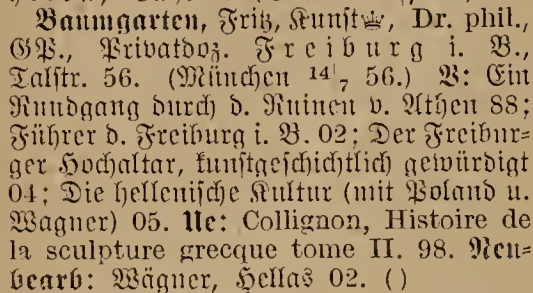 Baumgarten, Fritz, Kunst, Dr. phil.,
GP., Privatdoz. Freiburg i. B.,
Talstr. 56. (München 14/7 56.) V: Ein
Rundgang durch d. Ruinen v. Athen 88;
Führer d. Freiburg i. B. 02; Der Freibur=
ger Hochaltar, kunstgeschichtlich gewürdigt
04; Die hellenische Kultur (mit Poland u.
Wagner) 05. Ue: Collignon, Histoire de
la sculpture grecque tome II. 98. Neu=
bearb: Wägner, Hellas 02. ()